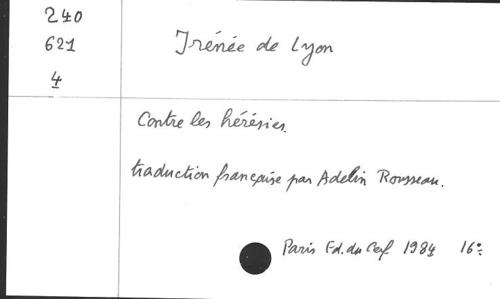 240
621
4
Irénée de Lyon
Contre les hérésies.
traduction française par Adelin Rousseau.
Paris Ed. du Cerf 1984 16°